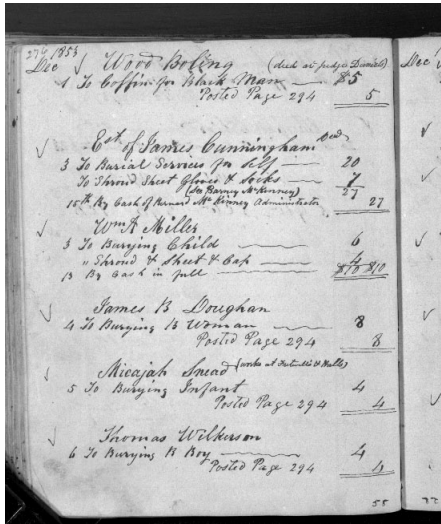 274 1855
Dec Wood Boling (died at Judge Daniels)
1 To Coffin for Black Man $5
Posted Page 294 5
Est of James Cunningham Decd
3 To Burial Services for self 20
To Shroud Sheet Gloves & Socks 7
(See Barney McKinney) 27
15th By Cash of Barnard McKinney Administrator 27
Wm A Miller
3 To Burying Child 6
" Shroud & Sheet & Cap 4
13 By Cash in full $10 $10
James B Doughan
4 To Burying B Woman 8
Posted Page 294 8
Micajah Snead (works at & Halls)
5 To Burying Infant 4
Posted Page 294 4
Thomas Wilkerson
6 To Burying B Boy 4
Posted Page 294 4
55
Dec